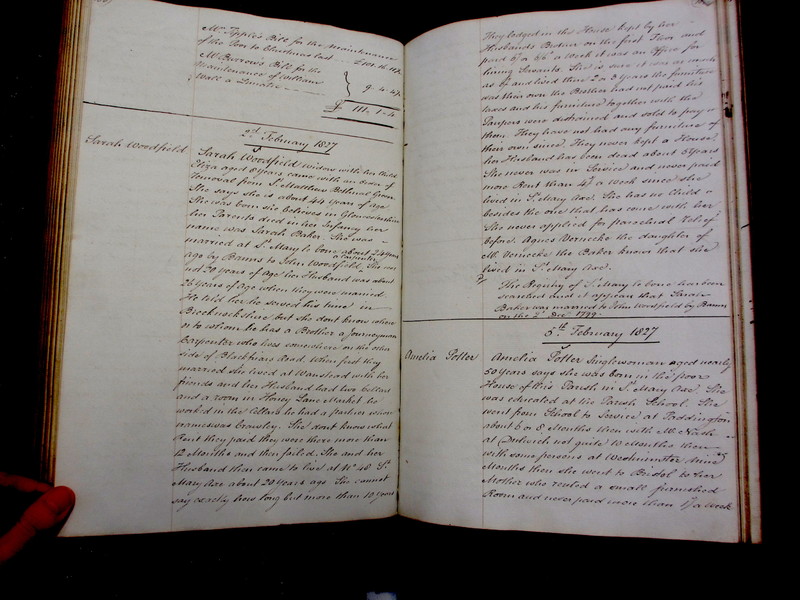 Mr Tipple's Bill for the Maintenance
of the Poor to Christmas last
Mr Burrows Bill for the
Maintenance of William
Wall a Lunatic
£ 111. 1. 4
2d. February 1827
Sarah Woodfield
Sarah Woodfield widow with her Child
Eliza aged 8 years came with an order of
Removal from St. Matthew Bethnal Green
She says she is about 44 years of age
She was born she believes in Gloucestershire
her Parents died in her Infancy her
name was Sarah Baker. She was
married at St. Mary le bone about 24 years
ago by Banns to John Woodfield a Carpenter. She was
not 20 years of Age her Husband was about
25 years of age when they were married.
He told her he served his time in
Brecknockshire but she dont know where
or to whom he has a Brother a Journeyman
Carpenter who lives somewhere on the other
side of Blackfriars Road. When first they
married she lived at Wanstead with her
friends and her Husband had two Cellars
and a room in Honey Lane Market he
work'd in the Cellars he had a partner whose
name was Crawley. She dont know what
Rent they paid they were there more than
12 Months and then failed. She and her
Husband then came to live at No. 48 St.
Mary Axe about 20 years ago. She cannot
say exactly how long but more than 10 years
They lodged in the House kept by her
Husbands Brother on the first Floor and
paid a Week it was an Office for
hiring Servants. She is sure it was as much
as and lived there 2 or 3 years the furniture
was their own the Brother had not paid his
taxes and his furniture together with the
Paupers were distrained and sold to pay
them. They have not had any furniture of
their own since. They never kept a House
her Husband has been dead about 5 years
She never was in Service and never paid
more Rent than 4/ a week since she
lived in St. Mary Axe. She has no Child
besides the one that has come with her
She never applied for parochial relief
before. Agnes Vernecke the daughter of
Mr. Vernecke the Baker knows that she
lived in St. Mary Axe.
The Registry of St. Mary le bone has been
searched and it appears that Sarah
Baker was married to John Woodfield by Banns
on the 2d. Decr 1799.
5th. February 1827
Amelia Potter
Amelia Potter Singlewoman aged nearly
50 years says she was born in the poor
House of this Parish in St. Mary Axe. She
was educated at the Parish School. She
went from School to Service at Paddington
about 6 or 8 Months then with Mr. Nash
at Dulwich not quite 12 Months then
with some persons at Westminster Nine
Months then she went to Bristol to her
Mother who rented a small furnished
Room and never paid more than a Week